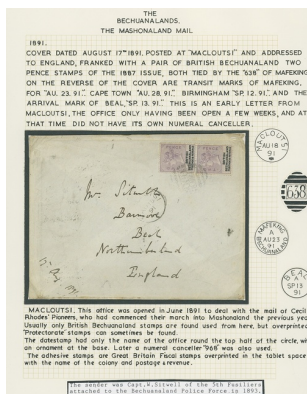 THE
BECHUANALANDS,
THE MASHONALAND MAIL
1891.
COVER DATED AUGUST 17TH 1891, POSTED AT "MACLOUTSI" AND ADDRESSED
TO ENGLAND, FRANKED WITH A PAIR OF BRITISH BECHUANALAND TWO
PENCE STAMPS OF THE 1887 ISSUE, BOTH TIED BY THE "638" OF MAFEKING
ON THE REVERSE OF THE COVER ARE TRANSIT MARKS OF MAFEKING,
FOR "AU. 23. 91." CAPE TOWN "AU. 28. 91." BIRMINGHAM "SP. 12. 91." AND THE
ARRIVAL MARK OF BEAL, "SP. 13. 91." THIS IS AN EARLY LETTER FROM
MACLOUTSI, THE OFFICE ONLY HAVING BEEN OPEN A FEW WEEKS, AND AT
THAT TIME DID NOT HAVE ITS OWN NUMERAL CANCELLER.
MACLOUTSI
AU 18
91
638
MAFEKING
A
AU 23
91
BECHUANALAND
BEAL
SP 13
91
Mrs. Sitwell
Barmoor
Beal
Northumberland
England
MACLOUTSI. This office was opened in June 1891 to deal with the mail of Cecil
Rhodes' Pioneers, who had commenced their march into Mashonaland the previous year.
Usually only British Bechuanaland stamps are found used from here, but overprinted
"Protectorate" stamps can sometimes be found.
The datestamp had only the name of the office round the top half of the circle, with
an ornament at the base. Later a numeral canceller "968" was also used.
The adhesive stamps are Great Britain Fiscal stamps overprinted in the tablet space
with the name of the colony and postage & revenue.
The sender was Capt.W.Sitwell of the 5th Fusiliers
attached to the Bechuanaland Police Force in 1893.